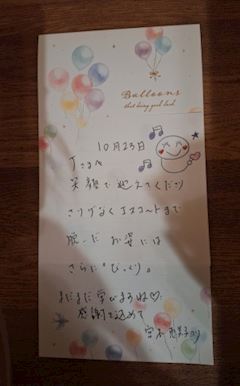 Balloons
that bring good luck
10月23日
笑顔で迎えてくださり
さりげなくエスコートまで
脱いだ お姿には
さらに"びっくり。
まだまだ学びますね♡
感謝を込めて